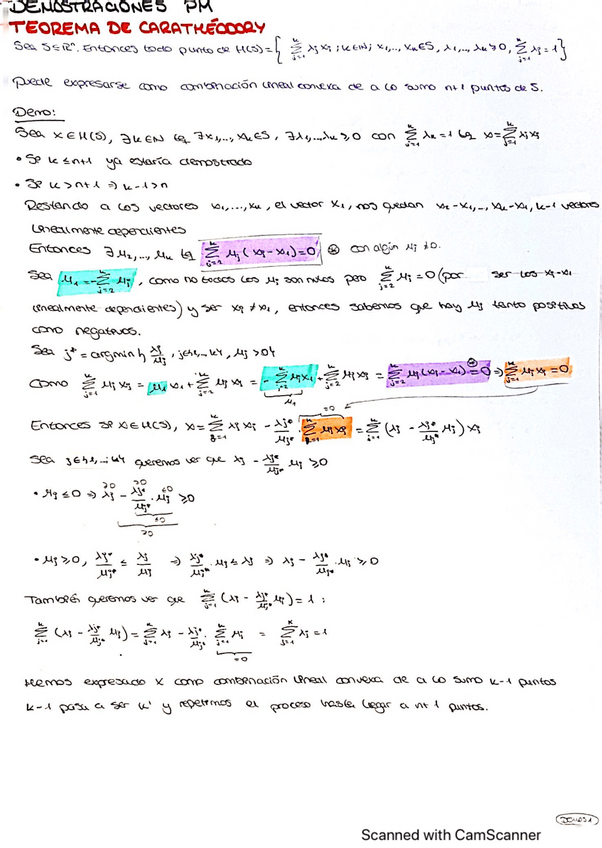 DEMOSTRACIONES PM
TEOREMA DE CARATHÉODORY
Sea S⊆ℝⁿ. Entonces todo punto de H(S)={ ∑_{j=1}^{k} λj xj ; k∈ℕ; x1,..., xk∈S, λ1,..., λk≥0, ∑_{j=1}^{k} λj=1}
Puede expresarse como combinación lineal convexa de a lo sumo n+1 puntos de S.
Demo:
Sea x∈H(S), ∃k∈ℕ tq ∃x1,..., xk∈S, ∃λ1,...,λk≥0 con ∑_{j=1}^{k} λk=1 tq x=∑_{j=1}^{k} λjxj
• Si k≤n+1 ya estaría demostrado
• Si k>n+1 ⇒ k-1>n
Restando a los vectores x1,..., xk, el vector x1, nos quedan x2-x1,..., xk-x1, k-1 vectores
linealmente dependientes
Entonces ∃μ2,..., μk tq ∑_{j=2}^{k} μj (xj-x1)=0 ⊛ con algún μj≠0.
Sea μ1=-∑_{j=2}^{k} μj, como no todos los μj son nulos pero ∑_{j=1}^{k} μj=0 (por ser los xj-x1
linealmente dependientes) y ser xj≠x1, entonces sabemos que hay μj tanto positivos
como negativos.
Sea j*=argmin{ λj/μj, j∈{1,...,k}, μj>0}
Como ∑_{j=1}^{k} μj xj = μ1 x1 + ∑_{j=2}^{k} μj xj = -∑_{j=2}^{k} μj x1 + ∑_{j=2}^{k} μj xj = ∑_{j=2}^{k} μj (xj-x1) =⊛ 0 ⇒ ∑_{j=1}^{k} μj xj=0
μ1
=0
Entonces si x∈H(S), x=∑_{j=1}^{k} λj xj - λj*/μj* · ∑_{j=1}^{k} μj xj = ∑_{j=1}^{k} (λj - λj*/μj* μj) xj
Sea j∈{1,...,k} queremos ver que λj - λj*/μj* μj ≥0
• μj≤0 ⇒ λj - λj*/μj* · μj ≥0
≥0 ≥0 ≤0
≤0
≥0
• μj≥0, λj*/μj* ≤ λj/μj ⇒ λj*/μj* · μj ≤ λj ⇒ λj - λj*/μj* · μj ≥0
También queremos ver que ∑_{j=1}^{k} (λj - λj*/μj* μj)=1 :
∑_{j=1}^{k} (λj - λj*/μj* μj) = ∑_{j=1}^{k} λj - λj*/μj* · ∑_{j=1}^{k} μj = ∑_{j=1}^{k} λj=1
=0
Hemos expresado x como combinación lineal convexa de a lo sumo k-1 puntos
k-1 pasa a ser k' y repetimos el proceso hasta llegar a n+1 puntos.
Scanned with CamScanner